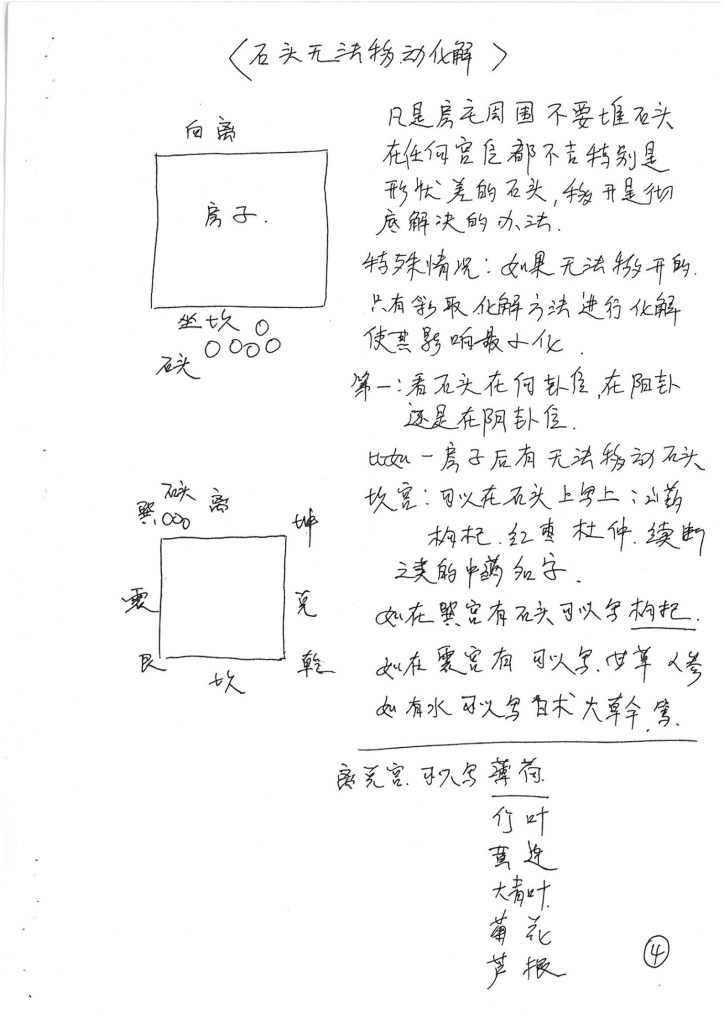 〈石头无法移动化解〉
向离
房子.
坐坎
石头
凡是房宅周围不要堆石头
在任何宫位都不吉特别是
形状差的石头,移开是彻
底解决的办法.
特殊情况:如果无法移开的.
只有采取化解方法进行化解
使其影响最小化.
第一:看石头在何卦位,在阳卦
还是在阴卦位.
比如一房子后有无法移动石头
坎宫:可以在石头上写上:山药
枸杞.红枣 杜仲.续断
之类的中药名字.
如在巽宫有石头可以写枸杞.
如在震宫有 可以写.甘草 人参
如有水 可以写白术 大草
石头
巽 离 坤
震 兑
艮 坎 乾
离兑宫.可以写薄荷.
竹叶
黄连
大青叶.
菊花
芦根
④